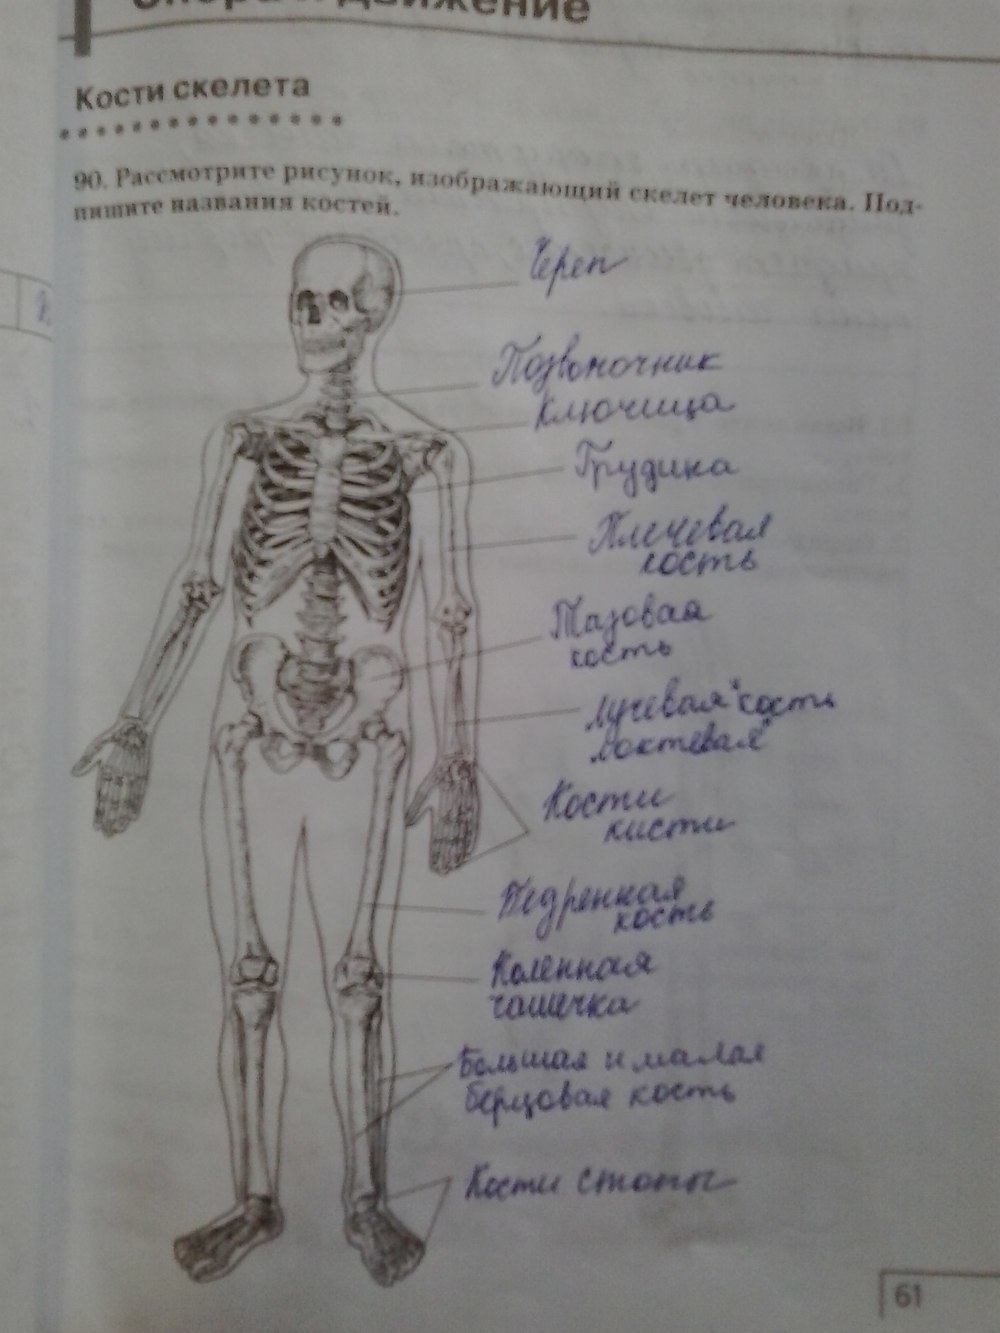 Опора и движение
Кости скелета
90. Рассмотрите рисунок, изображающий скелет человека. Под-
пишите названия костей.
Череп
Позвоночник
Ключица
Грудина
Плечевая
кость
Тазовая
кость
Лучевая "кость
локтевая"
Кости
кисти
Бедренная
кость
Коленная
чашечка
Большая и малая
берцовая кость
Кости стопы
61